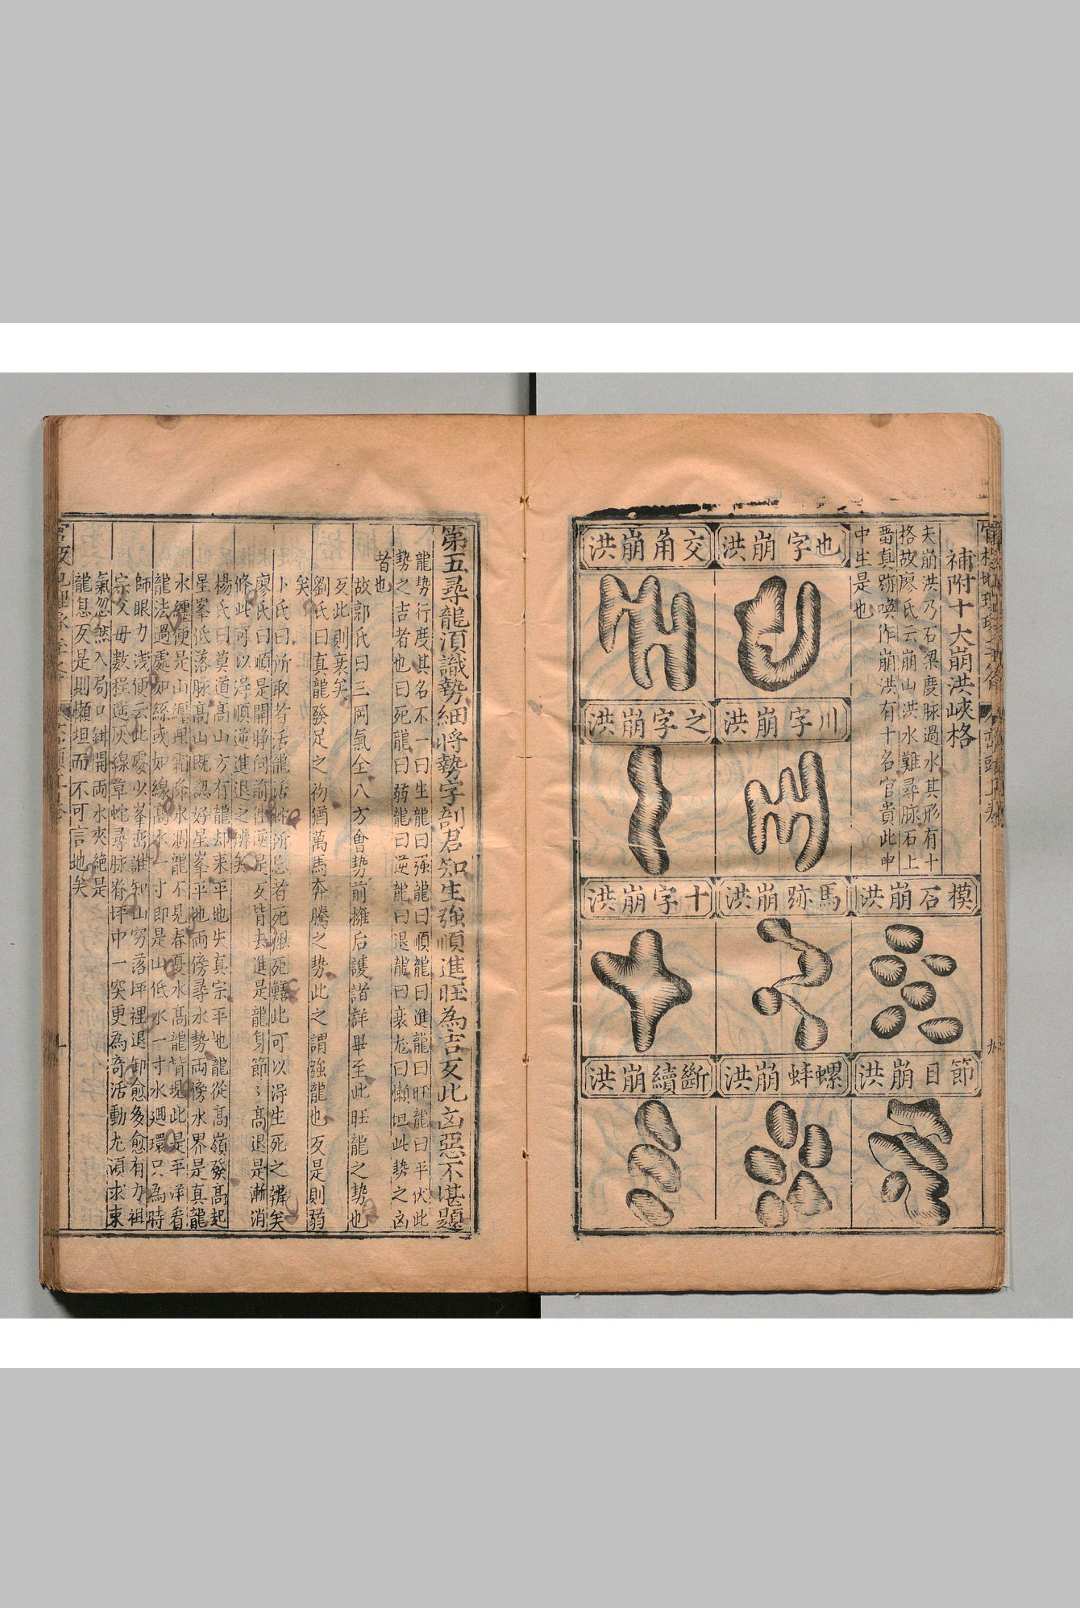 補附十大崩洪峽格
夫崩洪乃石梁度脉過水其形有十
格故廖氏云崩山洪水難尋脉石上
留真跡喚作崩洪有十名官貴此中
中生是也
也字崩洪
交角崩洪
川字崩洪
之字崩洪
模石崩洪
馬跡崩洪
十字崩洪
節目崩洪
螺蚌崩洪
斷續崩洪
九
第五尋龍湏識勢細將勢字剖君知生強順進旺為吉反此凶惡不堪題
龍勢行度其名不一曰生龍曰强龍曰順龍曰進龍曰旺龍曰平伏此
勢之吉者也曰死龍曰弱龍曰逆龍曰退龍曰衰龍曰懶坦此勢之凶
者也
故郭氏曰三岡氣全八方會勢前擁后護諸群畢至此旺龍之勢也
反此則衰矣
劉氏曰真龍發足之初猶萬馬奔騰之勢此之謂強龍也反是則弱
矣
卜氏曰所取者活龍活蛇所忌者死鰍死鱔此可以淂生死之辨矣
廖氏曰順是開睁向前往逆是反背去進是龍身節〻高退是漸消
條此可以淂順逆進退之辨矣
楊氏曰莫道高山方有龍却来平地失真宗平地龍從高嶺發高起
星峯低落脉高山既認好星峯平地両傍尋水勢両傍水界是真龍
水纏便是山纏里霜降水涸龍不見春夏水高龍背現此是平洋看
龍法過處如絲或如線高水一寸即是山低水一寸水週環只為時
師眼力淺便云此處少峯巒誰知山窮落坪裡退卸愈多愈有力祖
宗父母數程遠灰線草蛇尋脉脊坪中一突更為奇活動尤湏求束
氣忽然入局口鉗開両水夾絶是
龍息反是則懶坦而不可言地矣